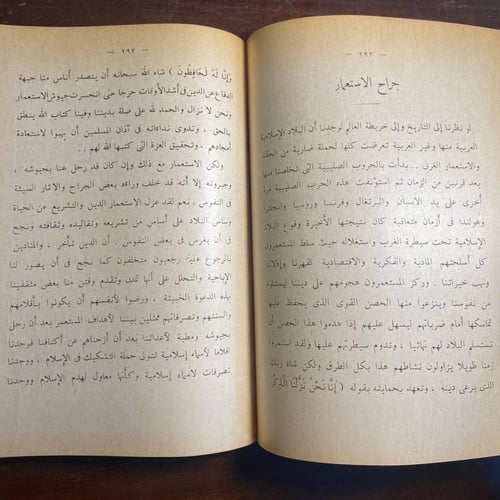 — ٢٩٢ —
جراح الاستعمار
لو نظرنا إلى التاريخ وإلى خريطة العالم لوجدنا أن البلاد الإسلامية
العربية منها وغير العربية تعرضت كلها لحملة ضارية من الحقد
والاستعمار الغربى .. بدأت بالحروب الصليبية التى تخلصنا منها
بعد قرنين من الزمان ثم استؤنفت هذه الحرب الصليبية مرة
أخرى على يد الاسبان والبرتغال وفرنسا وروسيا وانجلترا
وهولندا فى أزمان متعاقبة كان نتيجتها الأخيرة وقوع البلاد
الإسلامية تحت سيطرة الغرب واستغلاله حيث سلط المستعمرون
كل أسلحتهم المادية والفكرية والاقتصادية لقهرنا وإذلالنا
ونهب خيراتنا . وركز المستعمرون هجومهم على ديننا ليستلوه
من نفوسنا وينزعوا منها الحصن القوى الذى يحفظ عليها
تماسكها أمام ضرباتهم ليسهل عليهم إذا هدموا هذا الحصن أن
تستسلم البلاد لهم نهائيا ، وتدوم سيطرتهم عليها ولقد استمروا
زمنا طويلا يزاولون نشاطهم هذا بكل الطرق ولكن شاء ربك
الذى يرعى دينه ، وتعهد بحمايته بقوله ( إِنَّا نَحْنُ نَزَّلْنَا الذِّكْرَ
— ٢٩٣ —
وَإِنَّا لَهُ لَحَافِظُونَ ) شاء الله سبحانه أن يتصدر أناس منا جبهة
الدفاع عن الدين فى أشد الأوقات حرجا حتى انحسرت جيوش الاستعمار
ونحن لا نزال والحمد لله على صلة بديننا وفينا كتاب الله ينطق
بالحق ، وتدوى نداءاته فى آذان المسلمين أن يهبوا لاستعادة
أمجادهم ، وتحقيق العزة التى كتبها الله لهم ..
ولكن الاستعمار مع ذلك وإن كان قد رحل عنا بجيوشه ،
وجبروته إلا أنه قد خلف وراءه بعض الجراح والآثار السيئة
فى النفوس . نعم لقد عزل الاستعمار الدين والتشريع عن الحياة
وساس البلاد على أساس من تشريعه وتقاليده وثقافته ونجح
فى أن يغرس فى بعض النفوس . أن الدين تأخر ، والمنادين
بالرجوع إليه رجعيون متخلفون كما نجح فى أن يصور لنا
الإباحية والتحلل على أنها تمدن وتقدم وفتن منا بعض مثقفينا
بهذه الدعوة الخبيثة . ورضوا لأنفسهم أن يكونوا بأقلامهم
وألسنتهم وتصرفاتهم ممثلين بيننا لأهداف المستعمر بعد أن رحل
بجيوشه ومطية لأعدائنا بعد أن أزحناهم عن أكتافنا فوجدنا
أقلاما لأسماء إسلامية تتولى حملة التشكيك فى الإسلام ، ووجدنا
تصرفات لأسماء إسلامية وكأنها معاول لهدم الإسلام ووجدنا